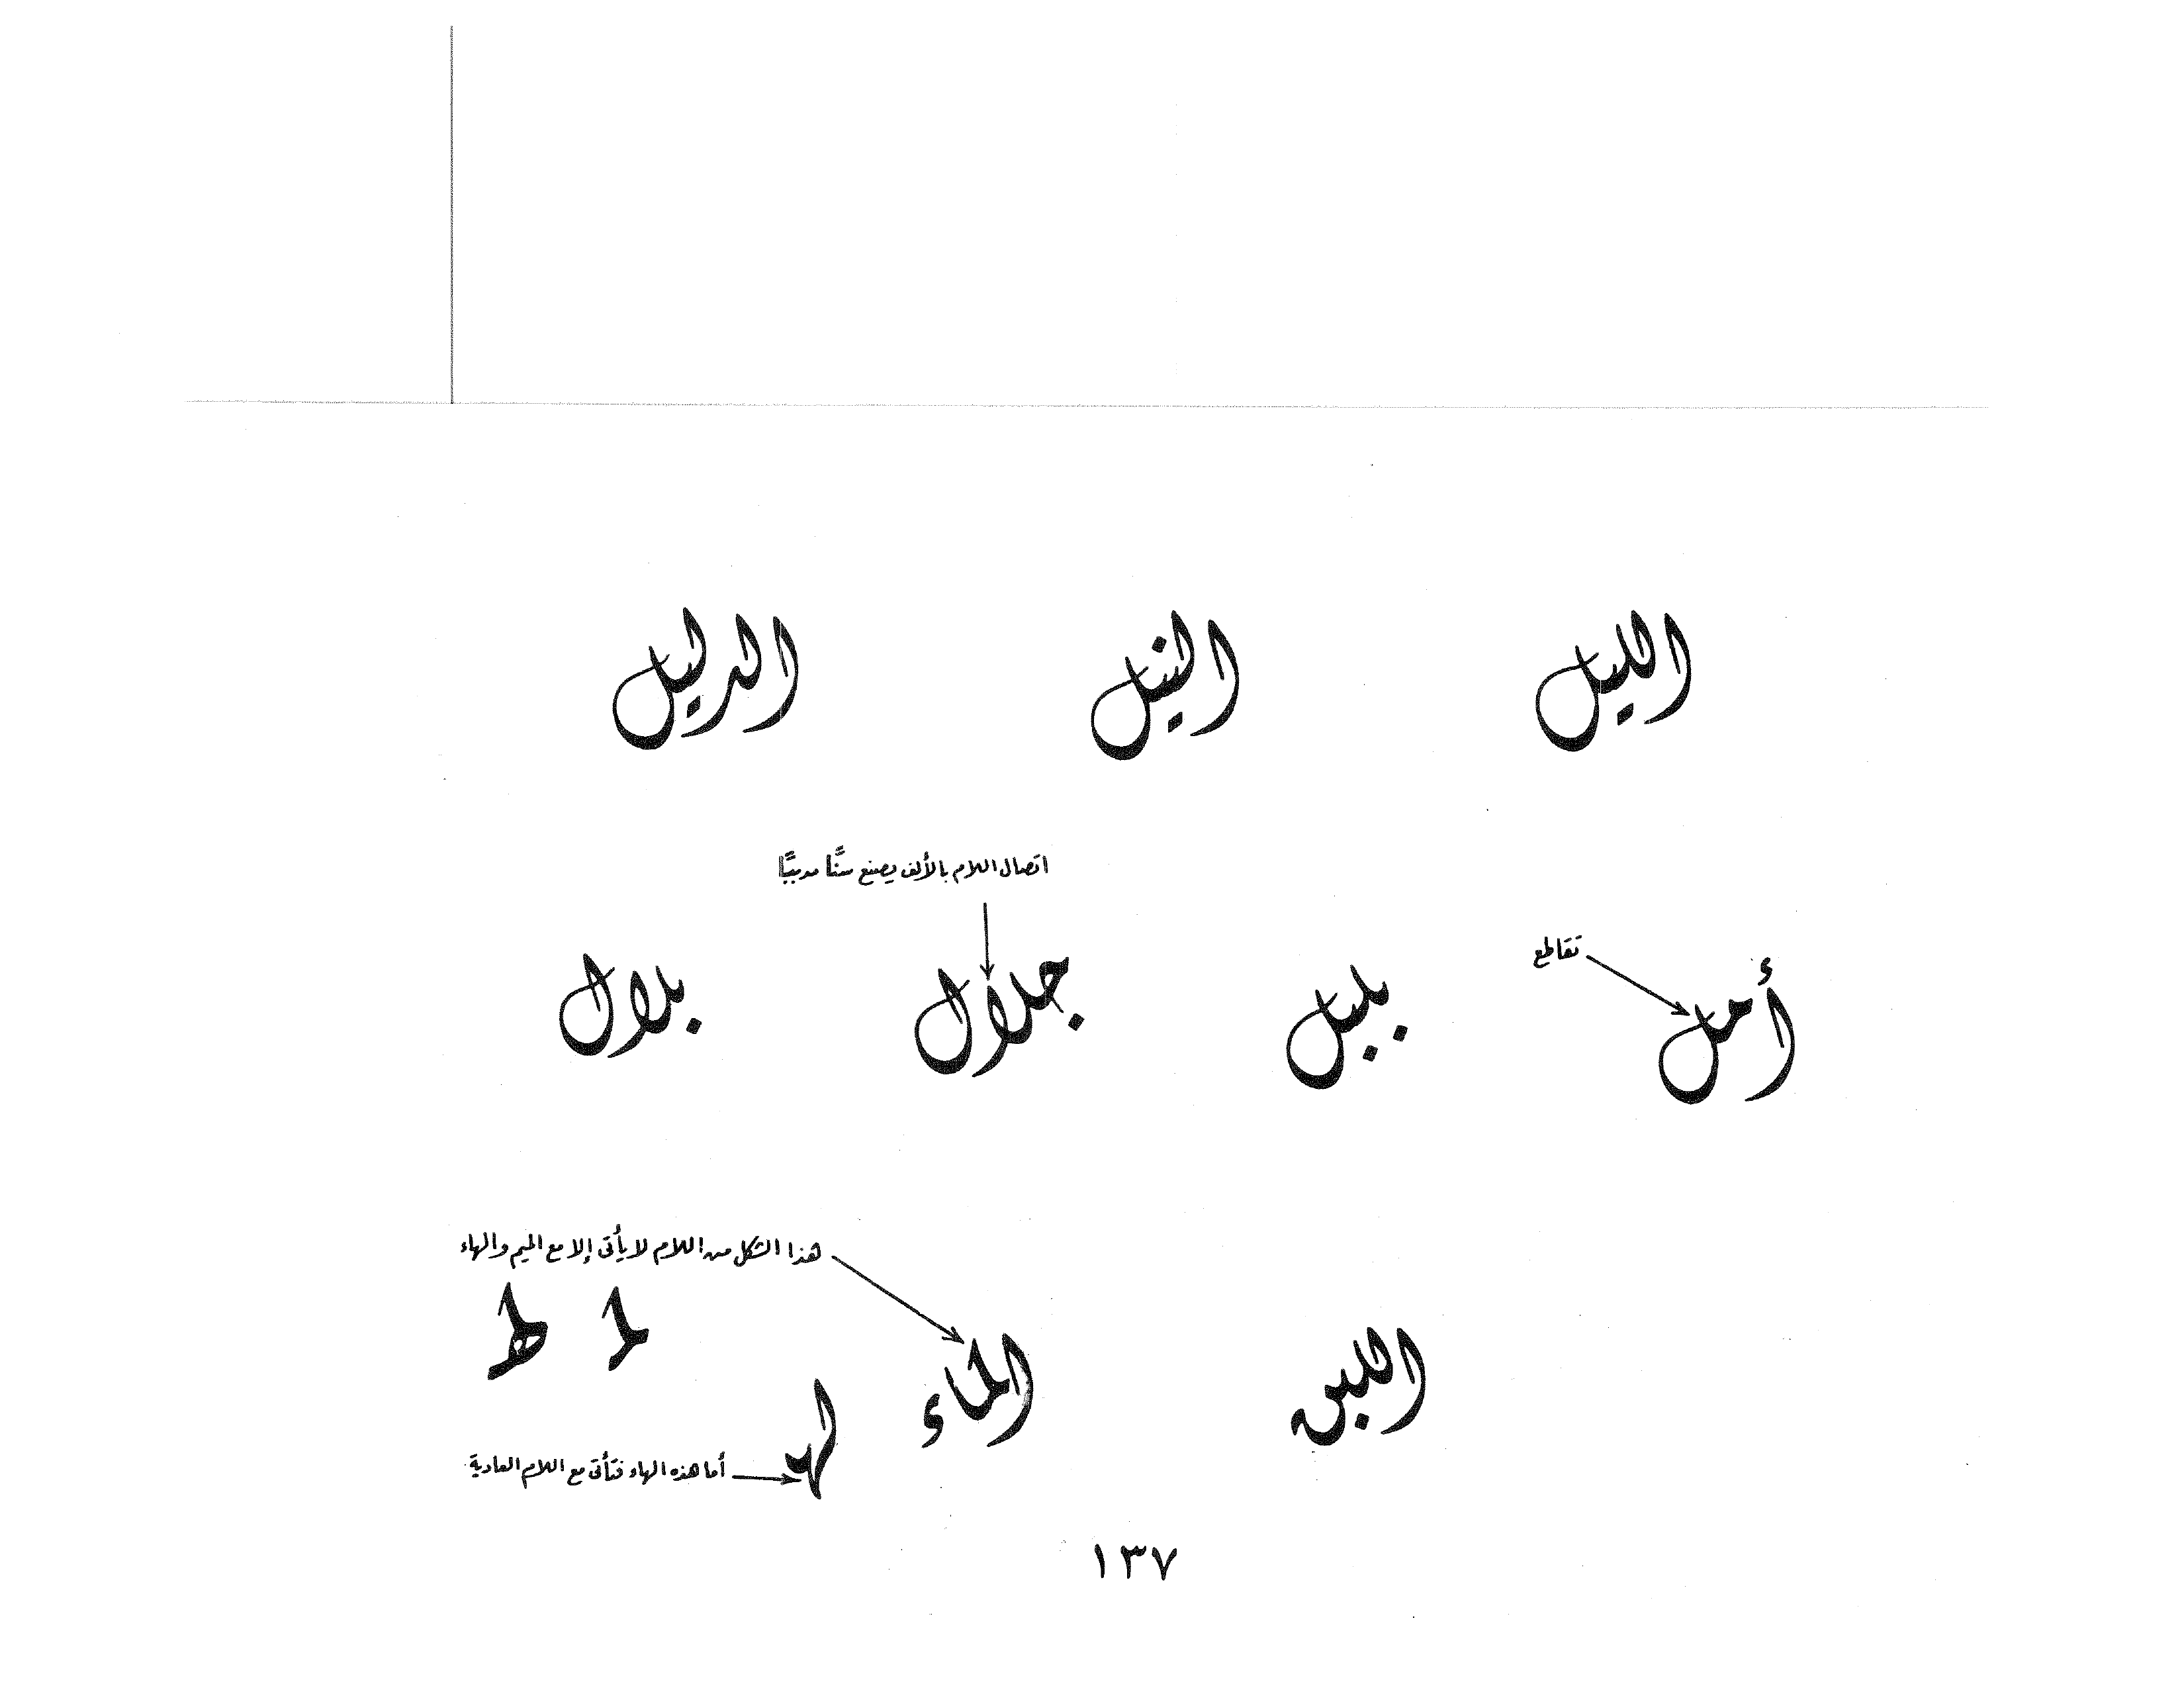 الليل النيل الدليل
اتصال اللام بالألف يصنع سنًّا مدببًا
تقاطع
أمل بليل جلال بلال
هذا الشكل من اللام لا يأتى إلا مع الميم والهاء
لم لهـ
اللبن الماء لهـ
أما هذه الهاء فتأتى مع اللام العادية
١٣٧